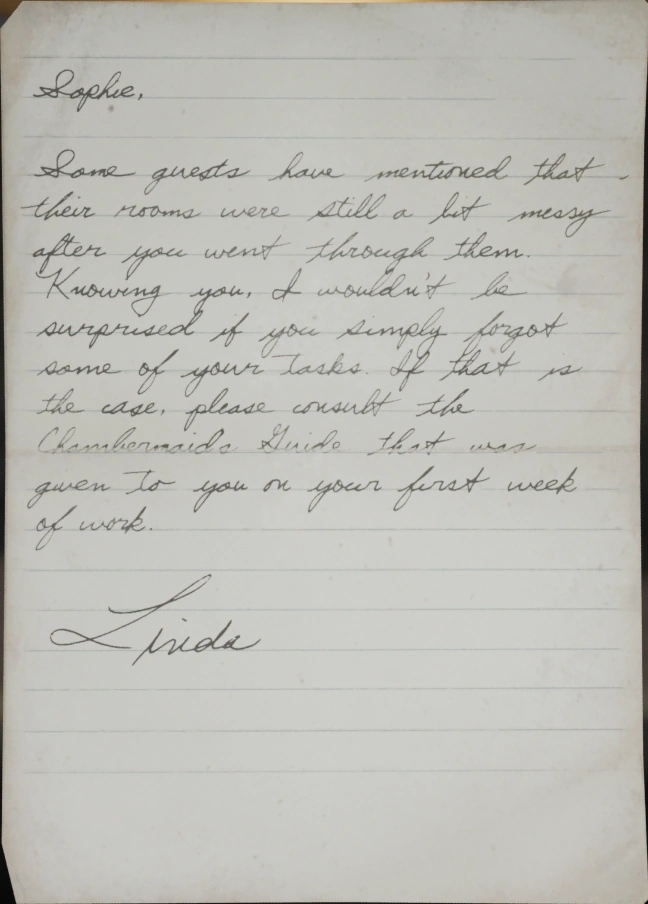 Sophie,
Some guests have mentioned that
their rooms were still a bit messy
after you went through them.
Knowing you, I wouldn't be
surprised if you simply forgot
some of your tasks. If that is
the case, please consult the
Chambermaids Guide that was
given to you on your first week
of work.
Linda